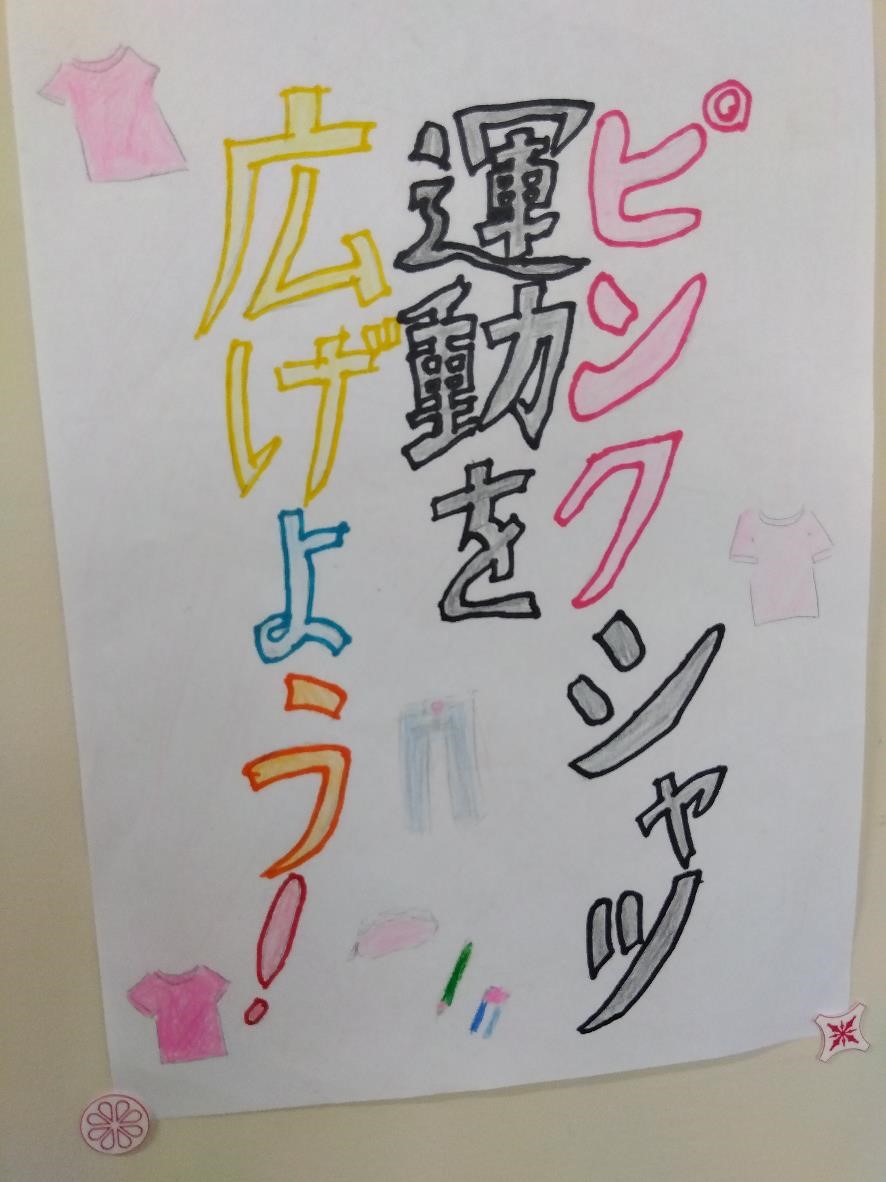 ピンクシャツ
運動を
広げよう!